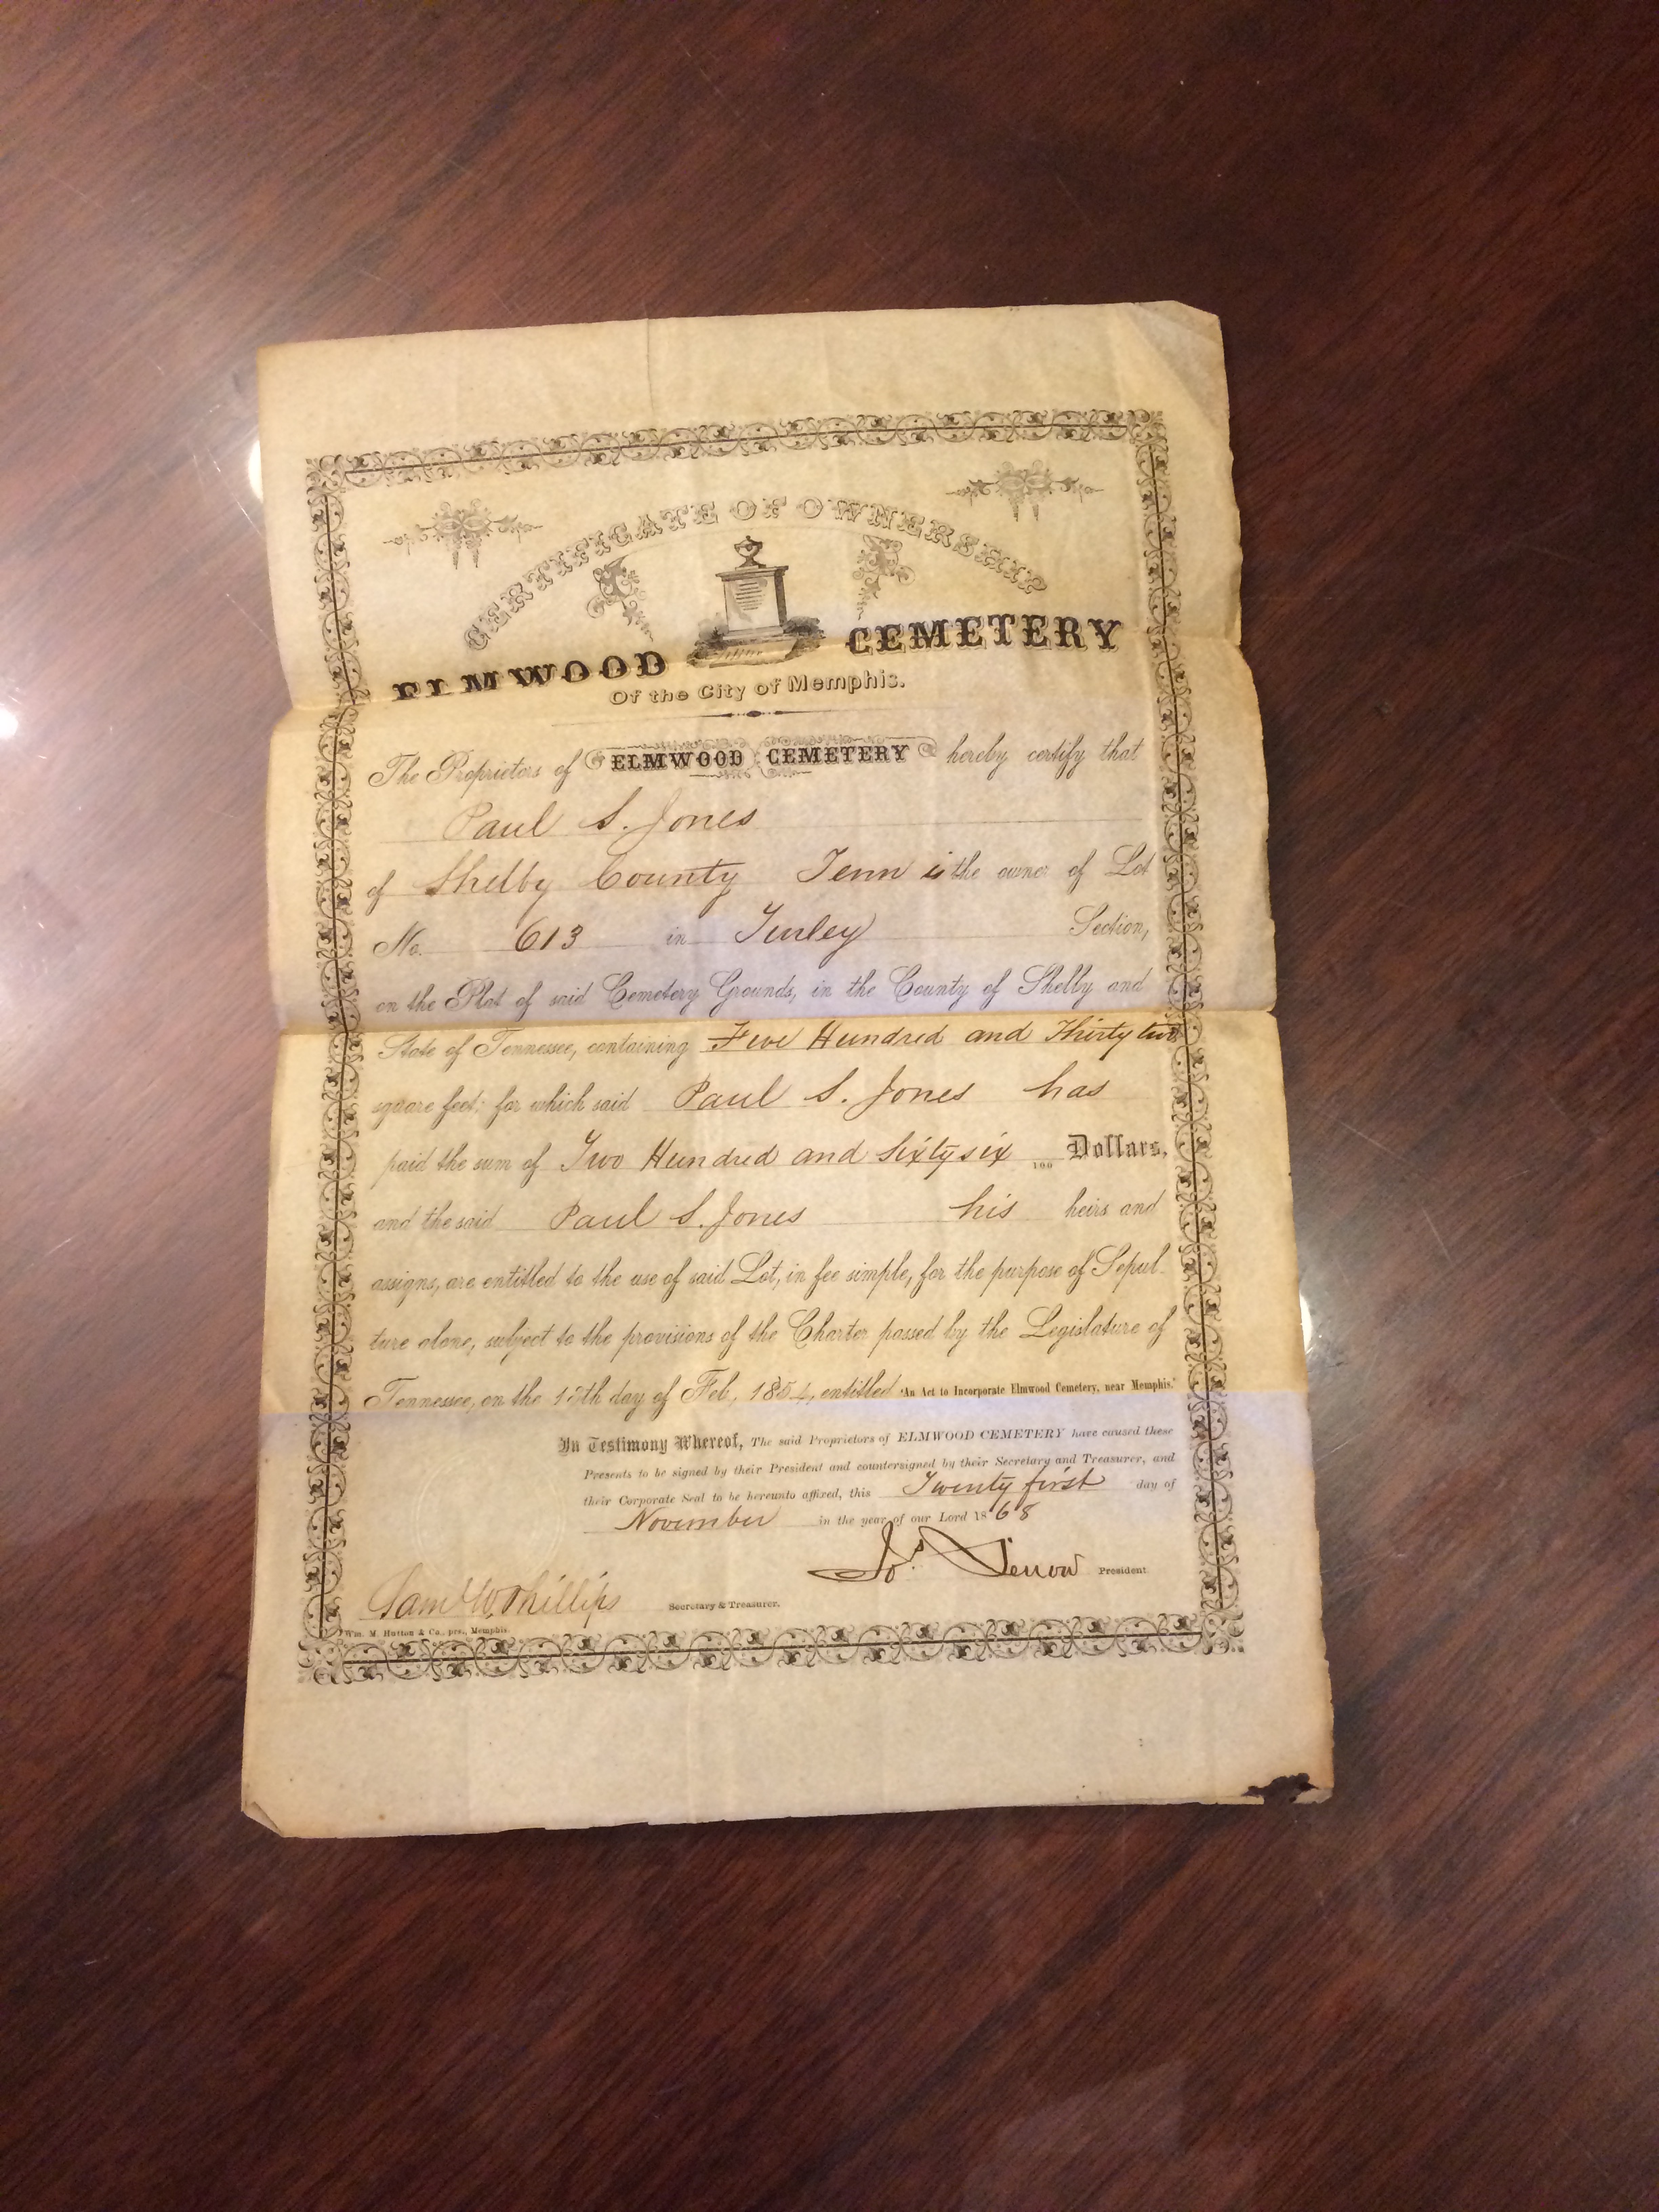 CERTIFICATE OF OWNERSHIP
ELMWOOD CEMETERY
Of the City of Memphis.
The Proprietors of ELMWOOD CEMETERY hereby certify that
Paul S. Jones
of Shelby County Tenn is the owner of Lot
No. 613 in Turley Section,
on the Plat of said Cemetery Grounds, in the County of Shelby and
State of Tennessee, containing Five Hundred and Thirty two
square feet; for which said Paul S. Jones has
paid the sum of Two Hundred and Sixty six 100 Dollars,
and the said Paul S. Jones his heirs and
assigns, are entitled to the use of said Lot, in fee simple, for the purpose of Sepul-
ture alone, subject to the provisions of the Charter passed by the Legislature of
Tennessee, on the day of Feb., 1854, entitled "An Act to Incorporate Elmwood Cemetery, near Memphis."
In Testimony Whereof, The said Proprietors of ELMWOOD CEMETERY have caused these
Presents to be signed by their President and countersigned by their Secretary and Treasurer, and
their Corporate Seal to be hereunto affixed, this Twenty first day of
November in the year of our Lord 1868
Jos. Lenow President
Sam W Phillips Secretary & Treasurer.
Wm. M. Hutton & Co., prs., Memphis.